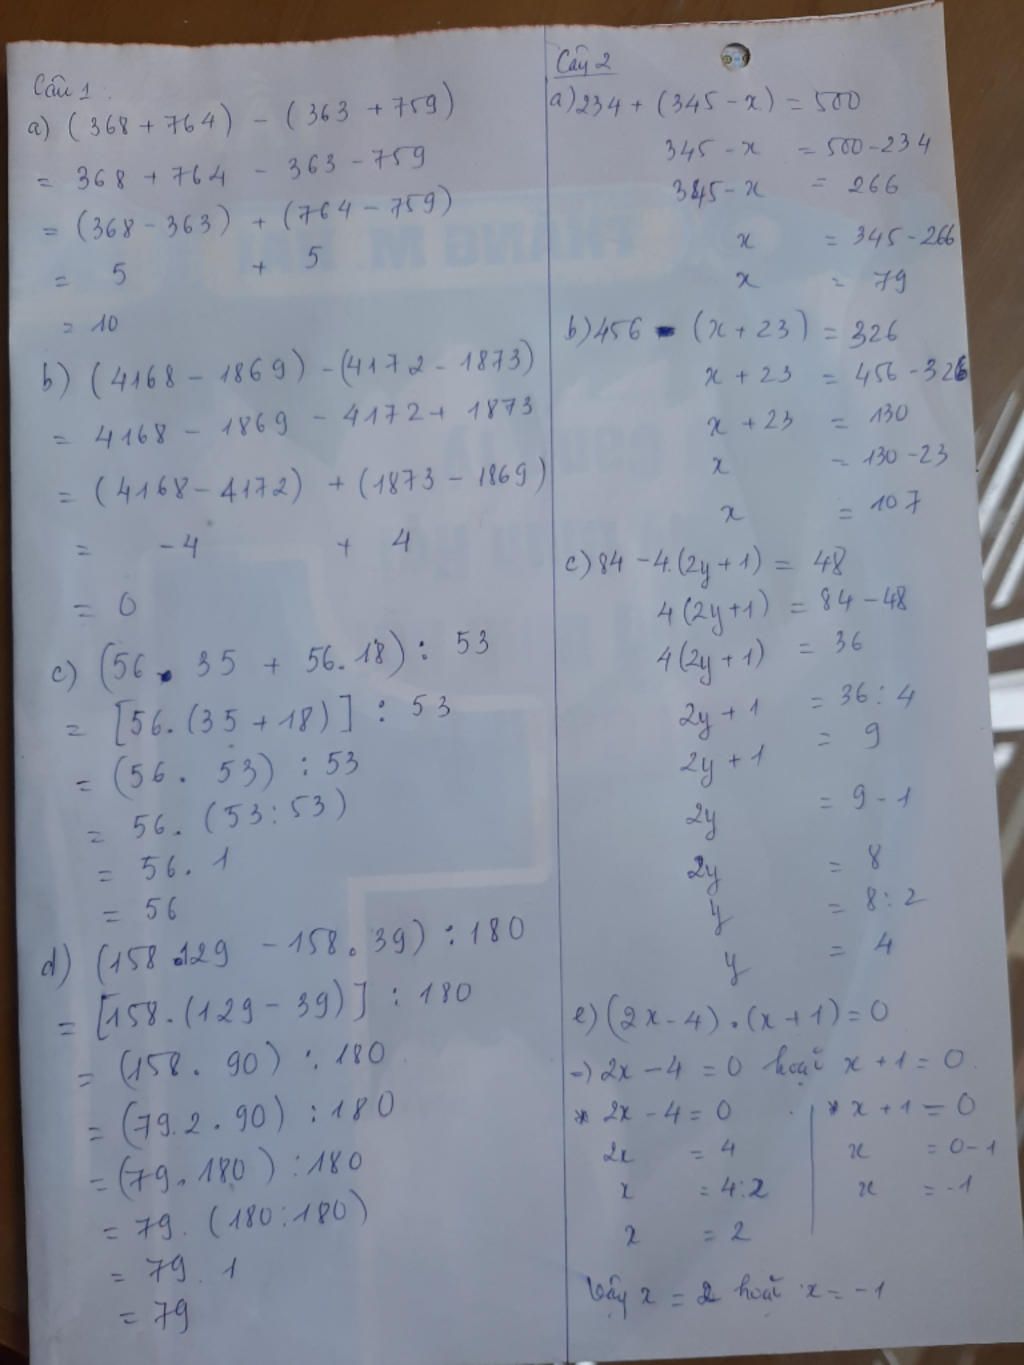 Câu 1
a) (368 + 764) - (363 + 759)
= 368 + 764 - 363 - 759
= (368 - 363) + (764 - 759)
= 5 + 5
= 10
b) (4168 - 1869) - (4172 - 1873)
= 4168 - 1869 - 4172 + 1873
= (4168 - 4172) + (1873 - 1869)
= -4 + 4
= 0
c) (56 . 35 + 56. 18) : 53
= [56. (35 + 18)] : 53
= (56 . 53) : 53
= 56. (53 : 53)
= 56. 1
= 56
d) (158 . 129 - 158. 39) : 180
= [158. (129 - 39)] : 180
= (158. 90) : 180
= (79. 2 . 90) : 180
= (79. 180) : 180
= 79. (180 : 180)
= 79. 1
= 79
Câu 2
a) 234 + (345 - x) = 500
345 - x = 500 - 234
345 - x = 266
x = 345 - 266
x = 79
b) 456 - (x + 23) = 326
x + 23 = 456 - 326
x + 23 = 130
x = 130 - 23
x = 107
c) 84 - 4. (2y + 1) = 48
4 (2y + 1) = 84 - 48
4 (2y + 1) = 36
2y + 1 = 36 : 4
2y + 1 = 9
2y = 9 - 1
2y = 8
y = 8 : 2
y = 4
e) (2x - 4) . (x + 1) = 0
=) 2x - 4 = 0 hoặc x + 1 = 0.
* 2x - 4 = 0
2x = 4
x = 4 : 2
x = 2
* x + 1 = 0
x = 0 - 1
x = -1
Vậy x = 2 hoặc x = -1